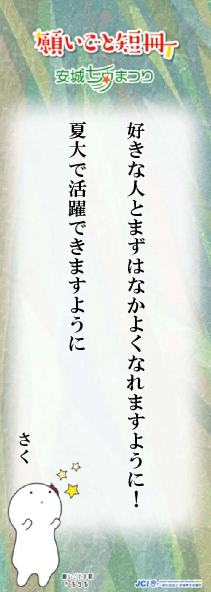 願いごと短冊
安城七夕まつり
好きな人とまずはなかよくなれますように！
夏大で活躍できますように
さく
JCI